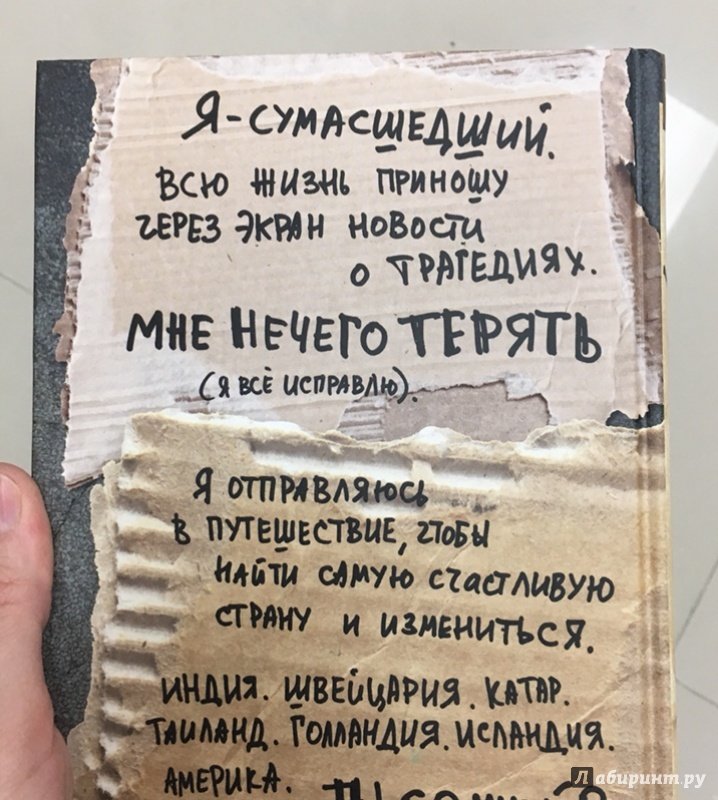 Я-СУМАСШЕДШИЙ.
ВСЮ ЖИЗНЬ ПРИНОШУ
ЧЕРЕЗ ЭКРАН НОВОСТИ
О ТРАГЕДИЯХ.
МНЕ НЕЧЕГО ТЕРЯТЬ
(Я ВСЁ ИСПРАВЛЮ).
Я ОТПРАВЛЯЮСЬ
В ПУТЕШЕСТВИЕ, ЧТОБЫ
НАЙТИ САМУЮ СЧАСТЛИВУЮ
СТРАНУ И ИЗМЕНИТЬСЯ.
ИНДИЯ. ШВЕЙЦАРИЯ. КАТАР.
ТАИЛАНД. ГОЛЛАНДИЯ. ИСЛАНДИЯ.
АМЕРИКА.
ТЫ СО МНОЙ?
Лабиринт.ру